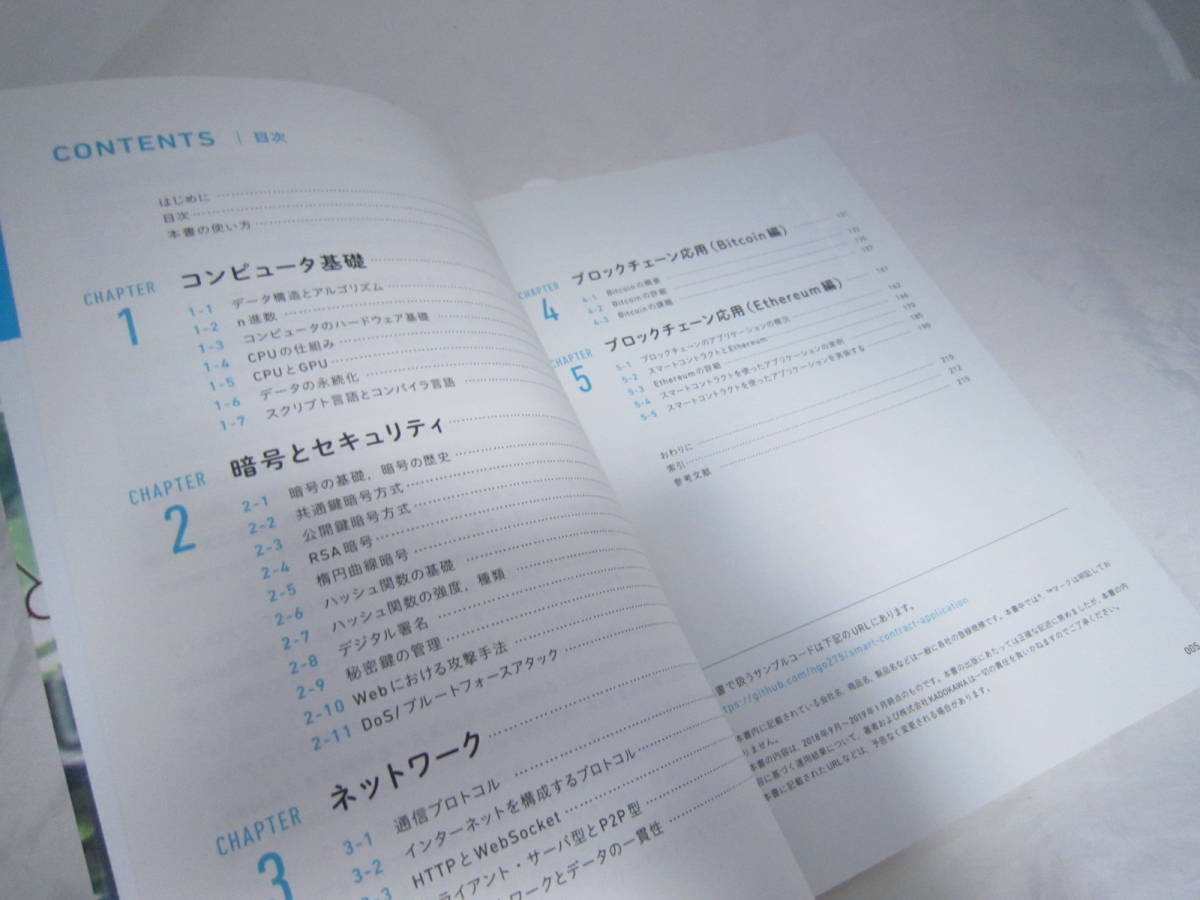 CONTENTS | 目次
はじめに
目次
本書の使い方
CHAPTER 1 コンピュータ基礎
1-1 データ構造とアルゴリズム
1-2 n進数
1-3 コンピュータのハードウェア基礎
1-4 CPUの仕組み
1-5 CPUとGPU
1-6 データの永続化
1-7 スクリプト言語とコンパイラ言語
CHAPTER 2 暗号とセキュリティ
2-1 暗号の基礎，暗号の歴史
2-2 共通鍵暗号方式
2-3 公開鍵暗号方式
2-4 RSA暗号
2-5 楕円曲線暗号
2-6 ハッシュ関数の基礎
2-7 ハッシュ関数の強度，種類
2-8 デジタル署名
2-9 秘密鍵の管理
2-10 Webにおける攻撃手法
2-11 DoS/ブルートフォースアタック
CHAPTER 3 ネットワーク
3-1 通信プロトコル
3-2 インターネットを構成するプロトコル
3-3 HTTPとWebSocket
ライアント・サーバ型とP2P型
ワークとデータの一貫性
CHAPTER 4 ブロックチェーン応用（Bitcoin編）
4-1 Bitcoinの概要
4-2 Bitcoinの詳細
4-3 Bitcoinの課題
CHAPTER 5 ブロックチェーン応用（Ethereum編）
5-1 ブロックチェーンのアプリケーションの概況
5-2 スマートコントラクトとEthereum
5-3 Ethereumの詳細
5-4 スマートコントラクトを使ったアプリケーションの実例
5-5 スマートコントラクトを使ったアプリケーションを実装する 190
おわりに 210
索引 212
参考文献 215
書で扱うサンプルコードは下記のURLにあります。
ttps://github.com/ngo275/smart-contract-application
本書内に記載されている会社名，商品名，製品名などは一般に各社の登録商標です。本書中では®，™マークは明記してお
りません。
本書の内容は，2018年9月〜2019年1月時点のものです。本書の出版にあたっては正確な記述に努めましたが，本書の内
容に基づく運用結果について，著者および株式会社KADOKAWAは一切の責任を負いかねますのでご了承ください。
本書に記載されたURLなどは，予告なく変更される場合があります。
005